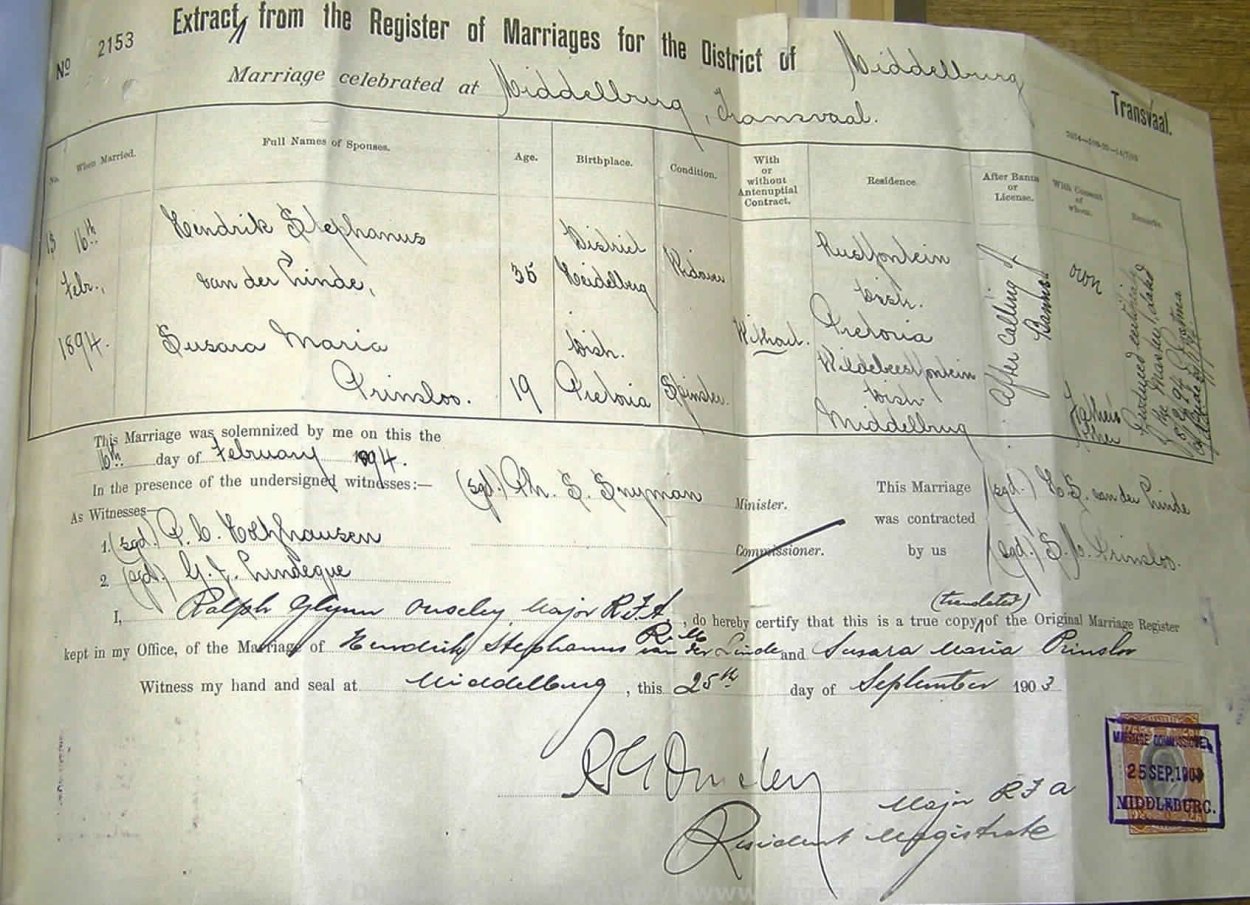 Nº 2153
Extract, from the Register of Marriages for the District of Middelburg
Transvaal.
Marriage celebrated at Middelburg, Transvaal.
No. When Married. Full Names of Spouses. Age. Birthplace. Condition. With or without Antenuptial Contract. Residence. After Banns or License. With Consent of whom. Remarks.
13 16th Febr., 1894.
Hendrik Stephanus
van der Linde,
35
District
Heidelberg
Widower
Susara Maria
Prinsloo.
19
Dist.
Pretoria
Spinster.
Without.
Rustfontein
Dist.
Pretoria
Wildebeestfontein
Dist.
Middelburg
After Calling of
Banns
own
Father's
This Marriage was solemnized by me on this the
16th day of February 1894.
In the presence of the undersigned witnesses:—
(sgd.) Ph. S. Snyman Minister.
This Marriage (sgd.) H. S. van der Linde
As Witnesses—
was contracted
1. (sgd.) P. C. Holtzhausen
Commissioner.
by us (sgd.) S. M. Prinsloo.
2 (sgd.) G. J. Lindeque
(translated)
I, Ralph Glynn Ouseley Major R.F.A., do hereby certify that this is a true copy of the Original Marriage Register
kept in my Office, of the Marriage of Hendrik Stephanus van der Linde and Susara Maria Prinsloo
Witness my hand and seal at Middelburg, this 25th day of September 1903
R G Ouseley
Major R F A
Resident Magistrate
MARRIAGE COMMISSIONER
25 SEP. 1903
MIDDLEBURG.